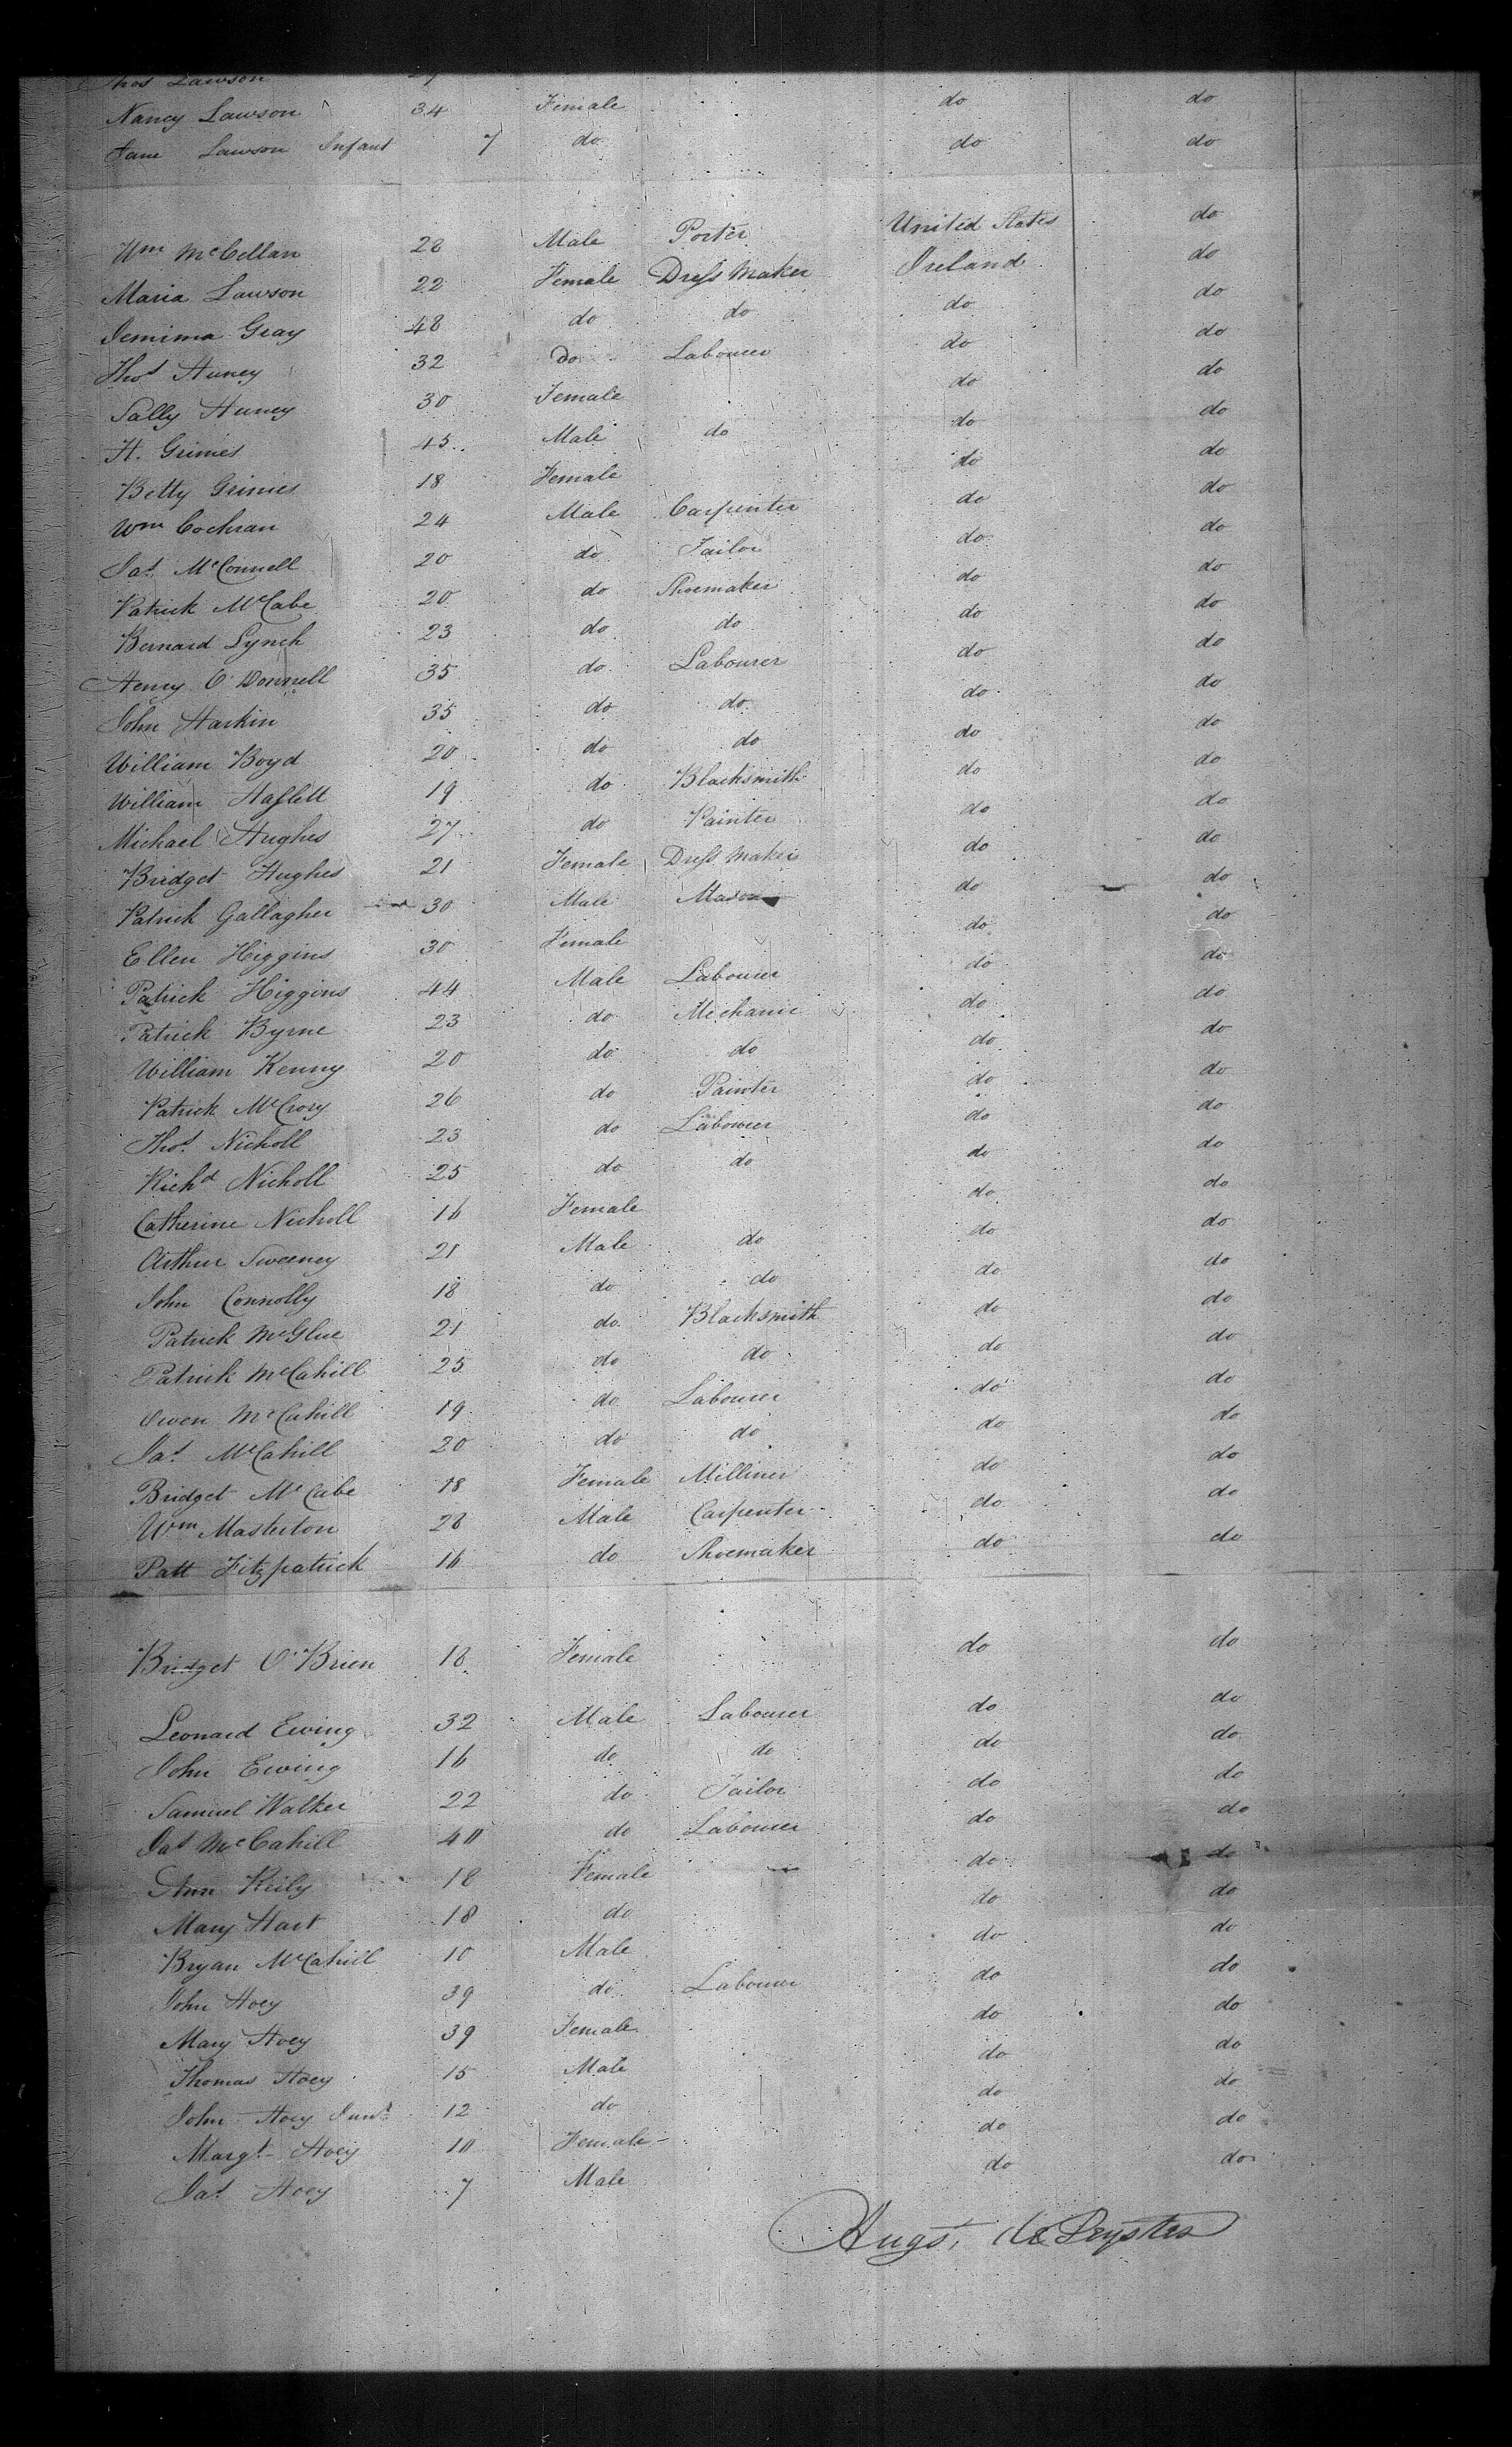 Thos Lawson
Nancy Lawson 34 Female do do
Jane Lawson Infant 7 do do do
Wm McCellan 28 Male Porter United States do
Maria Lawson 22 Female Dress Maker Ireland do
Jemima Gray 48 do do do do
Thos Huney 32 do Labourer do do
Sally Huney 30 Female do do
H. Grimes 45 Male do do do
Betty Grimes 18 Female do do
Wm Cochran 24 Male Carpenter do do
Jas McConnell 20 do Tailor do do
Patrick McCabe 20 do Shoemaker do do
Bernard Lynch 23 do do do do
Henry O'Donnell 35 do Labourer do do
John Harkin 35 do do do do
William Boyd 20 do do do do
William Haslett 19 do Blacksmith do do
Michael Hughes 27 do Painter do do
Bridget Hughes 21 Female Dress Maker do do
Patrick Gallagher 30 Male Mason do do
Ellen Higgins 30 Female do do
Patrick Higgins 44 Male Labourer do do
Patrick Byrne 23 do Mechanic do do
William Kenny 20 do do do do
Patrick McCrory 26 do Painter do do
Thos Nicholl 23 do Labourer do do
Richd Nicholl 25 do do do do
Catherine Nicholl 16 Female do do
Arthur Sweeney 21 Male do do do
John Connolly 18 do do do do
Patrick McGlue 21 do Blacksmith do do
Patrick McCahill 25 do do do do
Owen McCahill 19 do Labourer do do
Jas McCahill 20 do do do do
Bridget McCabe 18 Female Milliner do do
Wm Masterton 28 Male Carpenter do do
Patt Fitzpatrick 16 do Shoemaker do do
Bridget O'Brien 18 Female do do
Leonard Ewing 32 Male Labourer do do
John Ewing 16 do do do do
Samuel Walker 22 do Tailor do do
Jas McCahill 40 do Labourer do do
Ann Keily 18 Female do do
Mary Hart 18 do do do
Bryan McCahill 10 Male do do
John Hoey 39 do Labourer do do
Mary Hoey 39 Female do do
Thomas Hoey 15 Male do do
John Hoey Junr 12 do do do
Margt Hoey 10 Female do do
Jas Hoey 7 Male do do
Augs. de Peyster